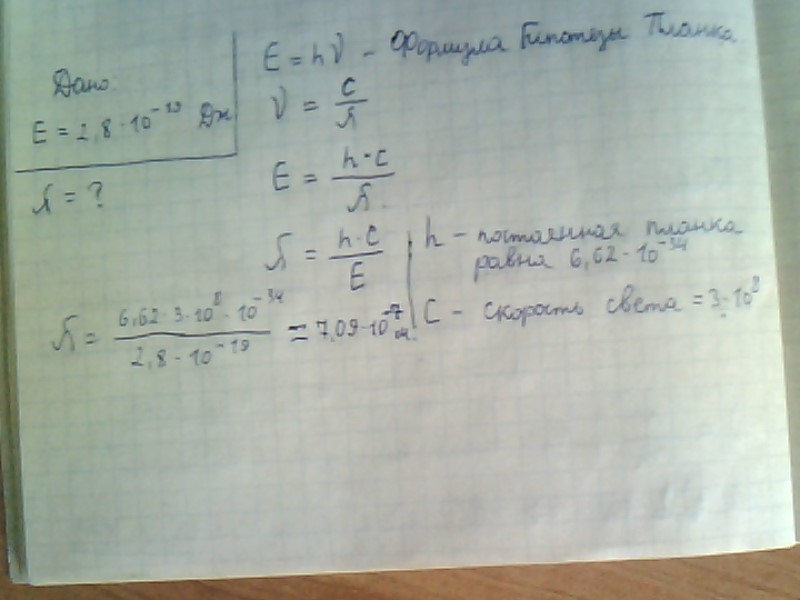 Дано:
E = 2,8·10⁻¹⁹ Дж
λ = ?
E = hν - Формула Гипотезы Планка
ν = c/λ
E = h·c/λ
λ = h·c/E
h - постоянная планка
равна 6,62·10⁻³⁴
C - скорость света = 3·10⁸
λ = 6,62·3·10⁸·10⁻³⁴/2,8·10⁻¹⁹ = 7,09·10⁻⁷ м.